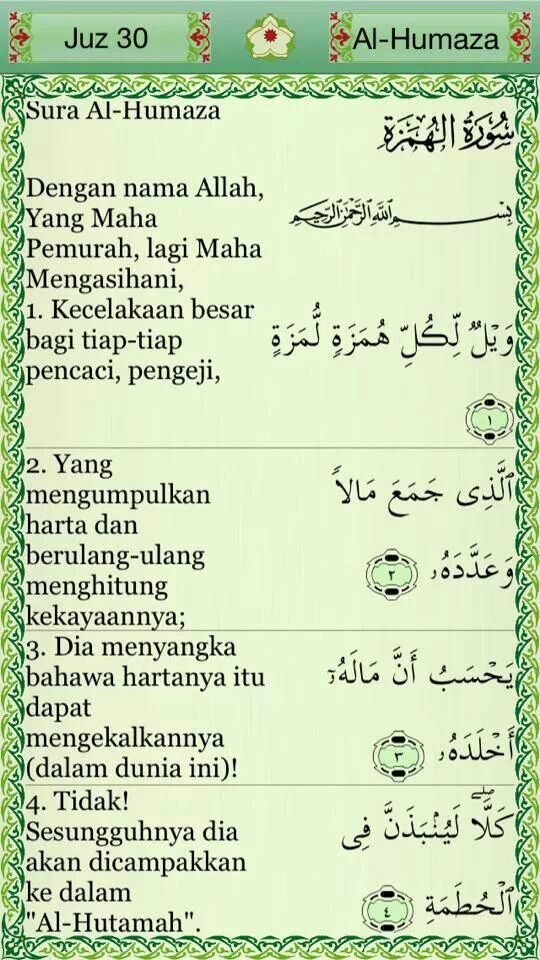 Juz 30
Al-Humaza
Sura Al-Humaza
سُورَةُ الهُمَزَةِ
Dengan nama Allah,
Yang Maha
Pemurah, lagi Maha
Mengasihani,
بِسْمِ اللَّهِ الرَّحْمَٰنِ الرَّحِيمِ
1. Kecelakaan besar
bagi tiap-tiap
pencaci, pengeji,
وَيْلٌ لِّكُلِّ هُمَزَةٍ لُّمَزَةٍ
١
2. Yang
mengumpulkan
harta dan
berulang-ulang
menghitung
kekayaannya;
ٱلَّذِى جَمَعَ مَالًا
وَعَدَّدَهُۥ ٢
3. Dia menyangka
bahawa hartanya itu
dapat
mengekalkannya
(dalam dunia ini)!
يَحْسَبُ أَنَّ مَالَهُۥٓ
أَخْلَدَهُۥ ٣
4. Tidak!
Sesungguhnya dia
akan dicampakkan
ke dalam
"Al-Hutamah".
كَلَّا ۖ لَيُنۢبَذَنَّ فِى
ٱلْحُطَمَةِ ٤